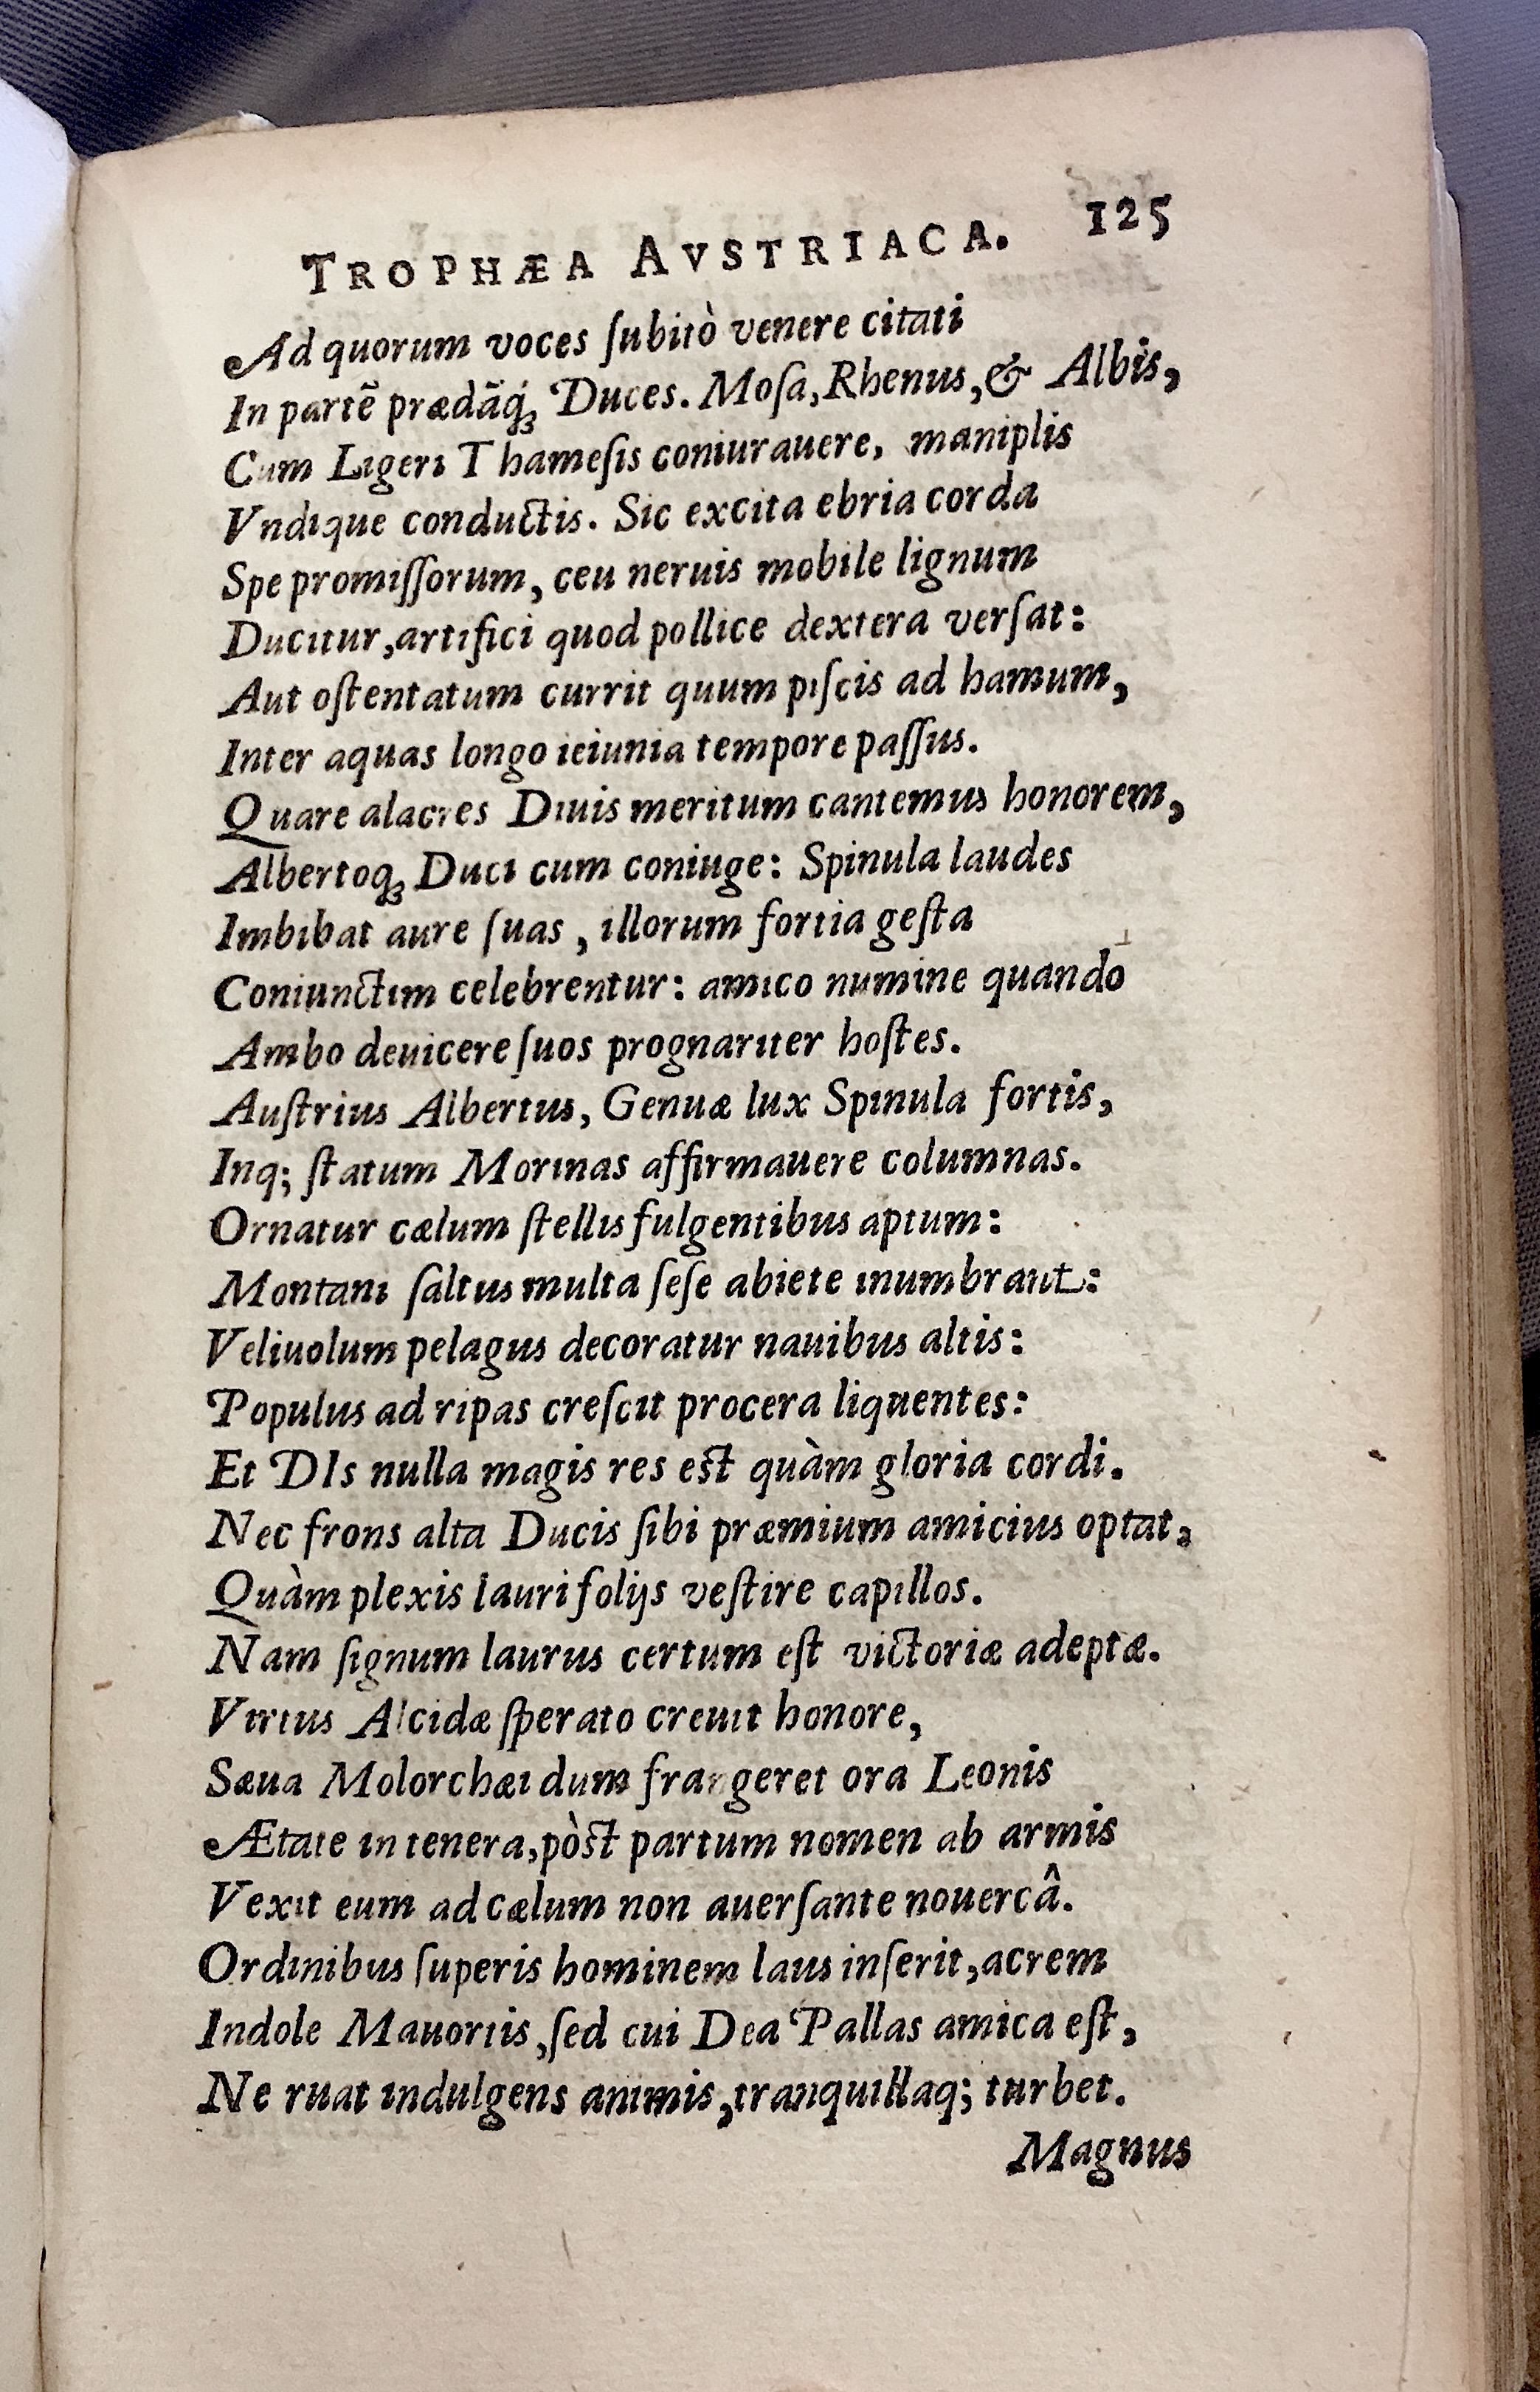 TROPHÆA AVSTRIACA. 125
Ad quorum voces ſubitò venere citati
In partẽ prædãq́ꝫ Duces. Moſa, Rhenus, & Albis,
Cum Ligeri Thameſis coniurauere, maniplis
Vndique conductis. Sic excita ebria corda
Spe promiſſorum, ceu neruis mobile lignum
Ducitur, artifici quod pollice dextera verſat:
Aut oſtentatum currit quum piſcis ad hamum,
Inter aquas longo ieiunia tempore paſſus.
Quare alacres Diuis meritum cantemus honorem,
Albertoqꝫ Duci cum coniuge: Spinula laudes
Imbibat aure ſuas, illorum fortia geſta
Coniunctim celebrentur: amico numine quando
Ambo deuicere ſuos prognariter hoſtes.
Auſtrius Albertus, Genuæ lux Spinula fortis,
Inq; ſtatum Morinas affirmauere columnas.
Ornatur cælum ſtellis fulgentibus aptum:
Montani ſaltus multa ſeſe abiete inumbrant:
Veliuolum pelagus decoratur nauibus altis:
Populus ad ripas creſcit procera liquentes:
Et DIs nulla magis res est quàm gloria cordi.
Nec frons alta Ducis ſibi præmium amicius optat,
Quàm plexis lauri folijs veſtire capillos.
Nam ſignum laurus certum eſt victoriæ adeptæ.
Virtus Alcidæ ſperato creuit honore,
Sæua Molorchæi dum frangeret ora Leonis
Ætate in tenera, pòst partum nomen ab armis
Vexit eum ad cælum non auerſante nouercâ.
Ordinibus ſuperis hominem laus inſerit, acrem
Indole Mauortis, ſed cui Dea Pallas amica eſt,
Ne ruat indulgens animis, tranquillaq; turbet.
Magnus